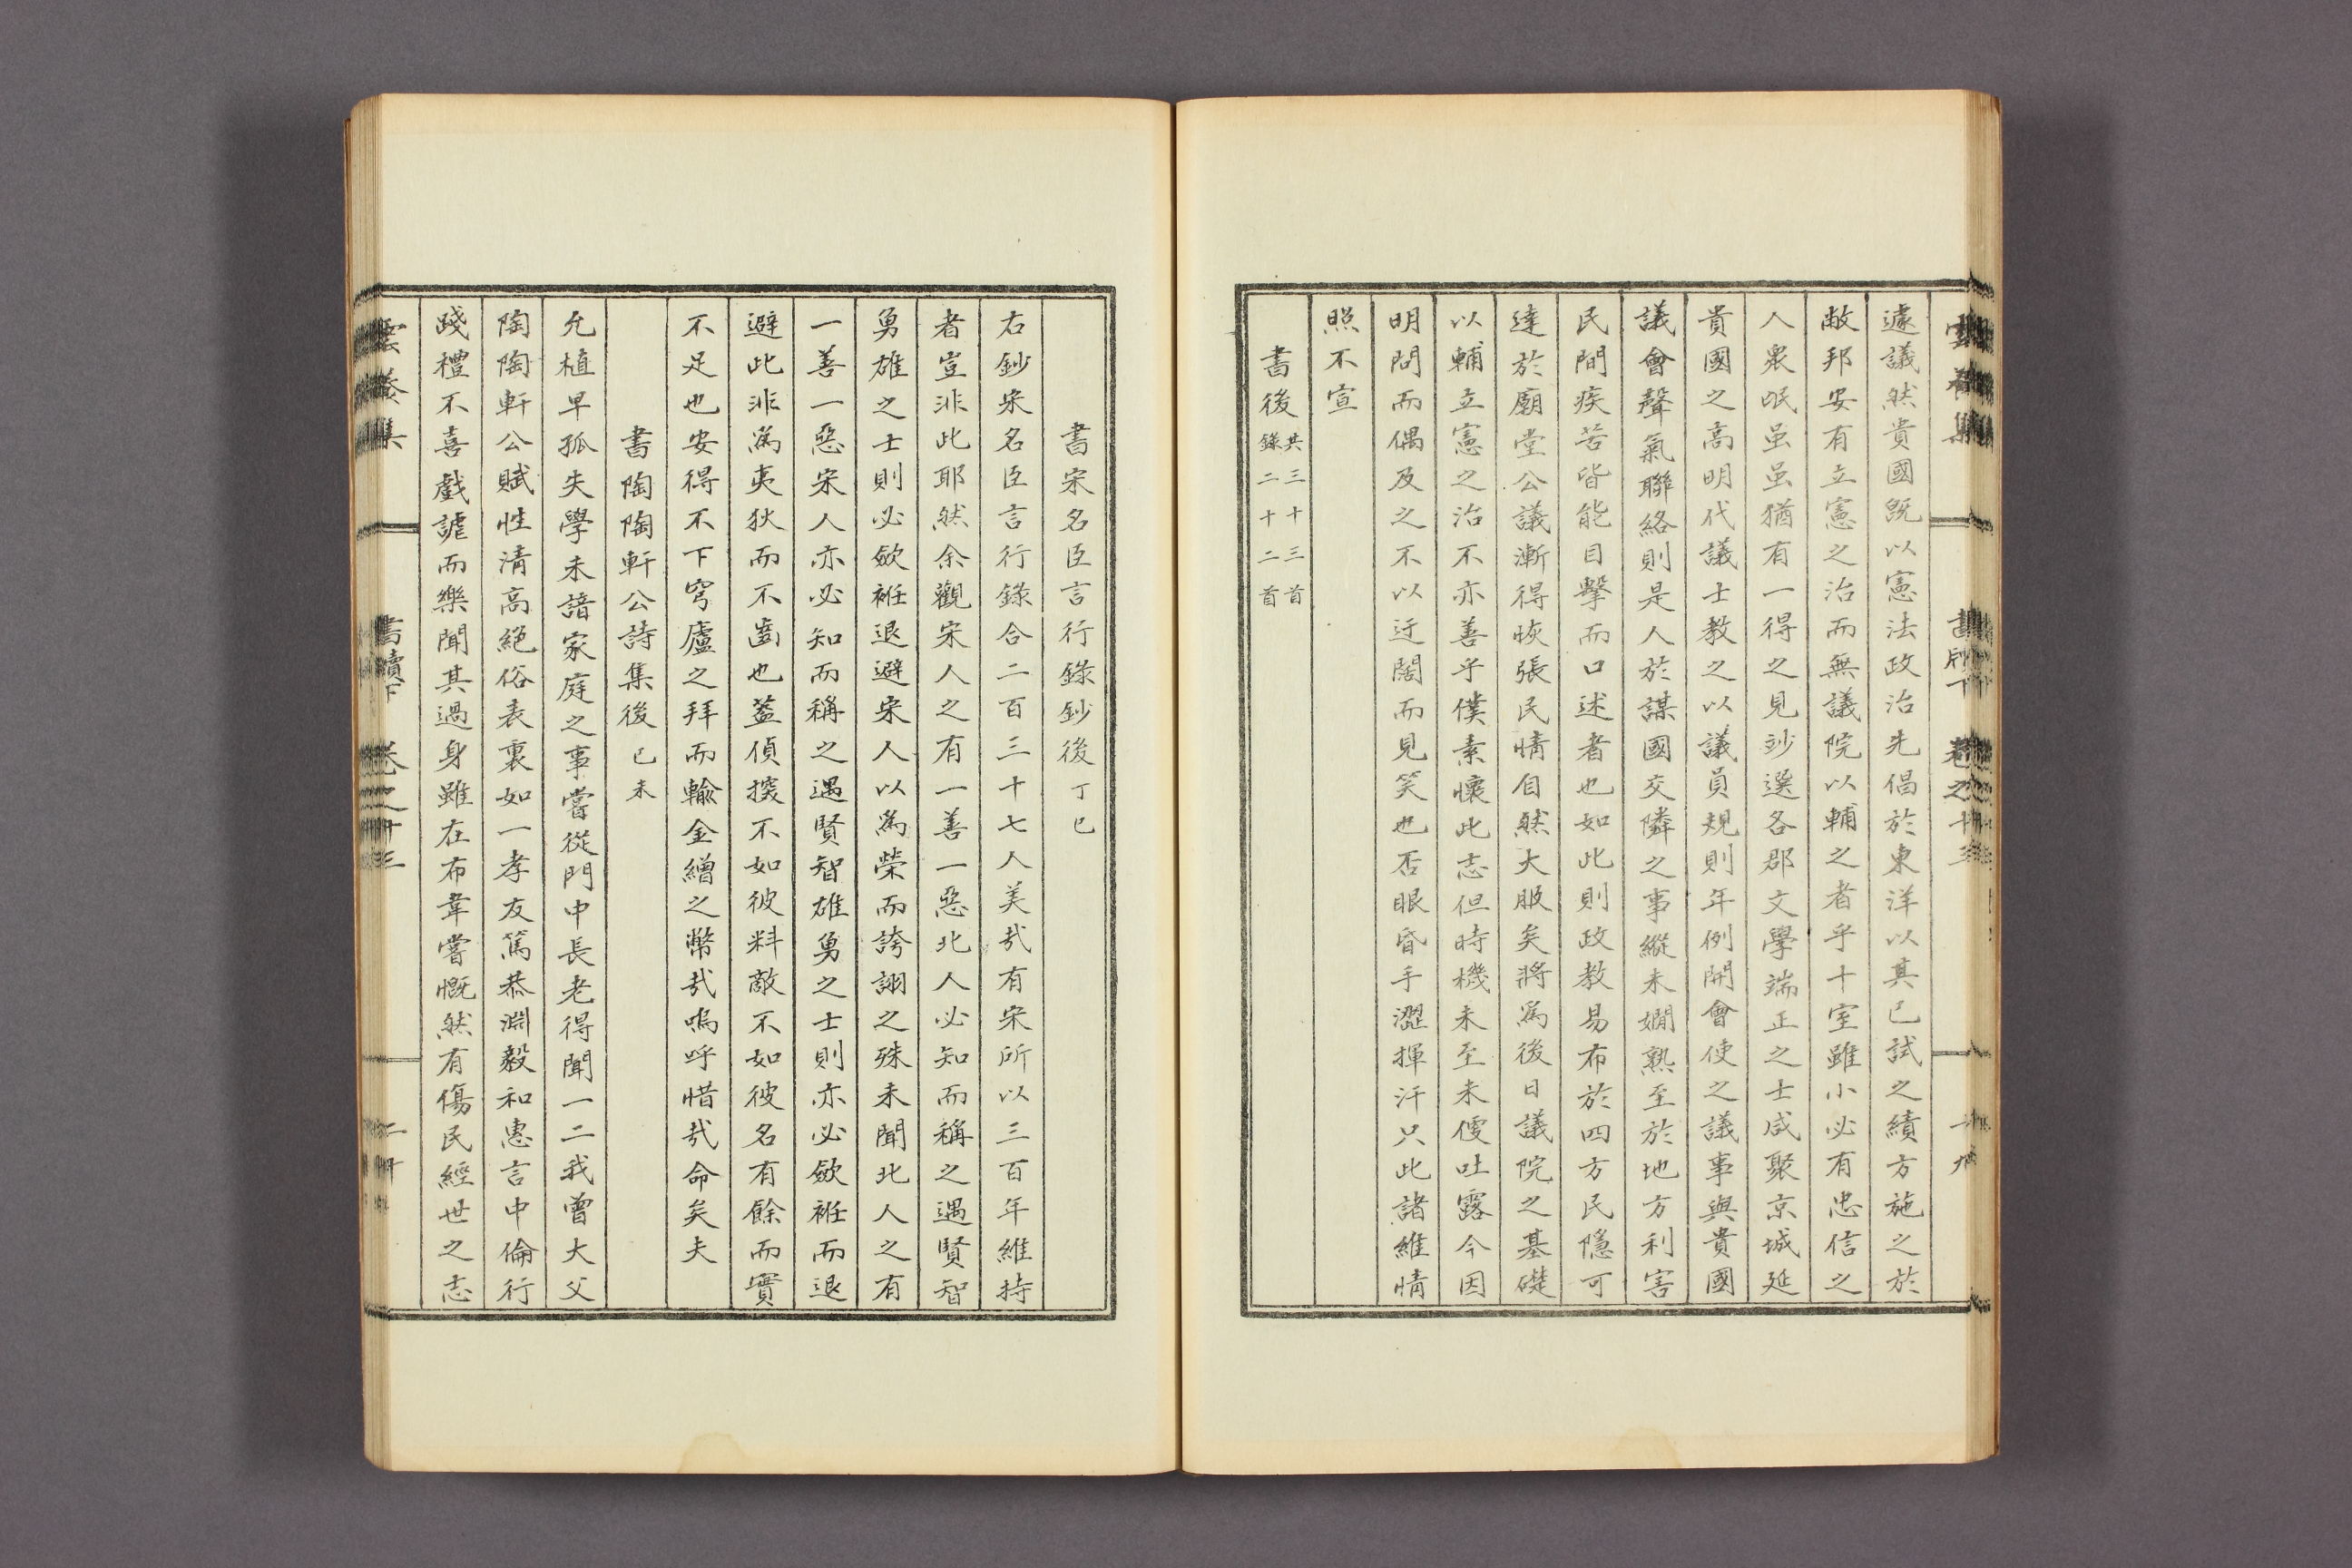 遽議然貴國旣以憲法政治先倡於東洋以其已試之績方施之於
敝邦安有立憲之治而無議院以輔之者乎十室雖小必有忠信之
人衆氓虽虽猶有一得之見鈔選各郡文學端正之士咸聚京城延
貴國之高明代議士教之以議員規則年例開會使之議事與貴國
議會聲氣聯絡則是人於謀國交隣之事縱未嫺熟至於地方利害
民間疾苦皆能目擊而口述者也如此則政教易布於四方民隱可
達於廟堂公議漸得恢張民情自然大服矣將爲後日議院之基礎
以輔立憲之治不亦善乎僕素懷此志但時機未至未便吐露今因
明問而偶及之不以迂闊而見笑也否眼昏手澀揮汗只此諸維情
照不宣
書後共三十三首錄二十二首
書宋名臣言行錄鈔後丁巳
右鈔宋名臣言行錄合二百三十七人美哉有宋所以三百年維持
者豈非此耶然余觀宋人之有一善一惡北人必知而稱之遇賢智
勇雄之士則必斂袵退避宋人以爲榮而誇詡之殊未聞北人之有
一善一惡宋人亦必知而稱之遇賢智雄勇之士則亦必斂袵而退
避此非爲夷狄而不齒也蓋偵探不如彼料敵不如彼名有餘而實
不足也安得不下穹廬之拜而輸金繒之幣哉嗚呼惜哉命矣夫
書陶陶軒公詩集後己未
允植早孤失學未諳家庭之事嘗從門中長老得聞一二我曾大父
陶陶軒公賦性清高絕俗表裏如一孝友篤恭淵毅和惠言中倫行
踐禮不喜戲謔而樂聞其過身雖在布韋嘗慨然有傷民經世之志
雲養集 書牘下 卷之十三